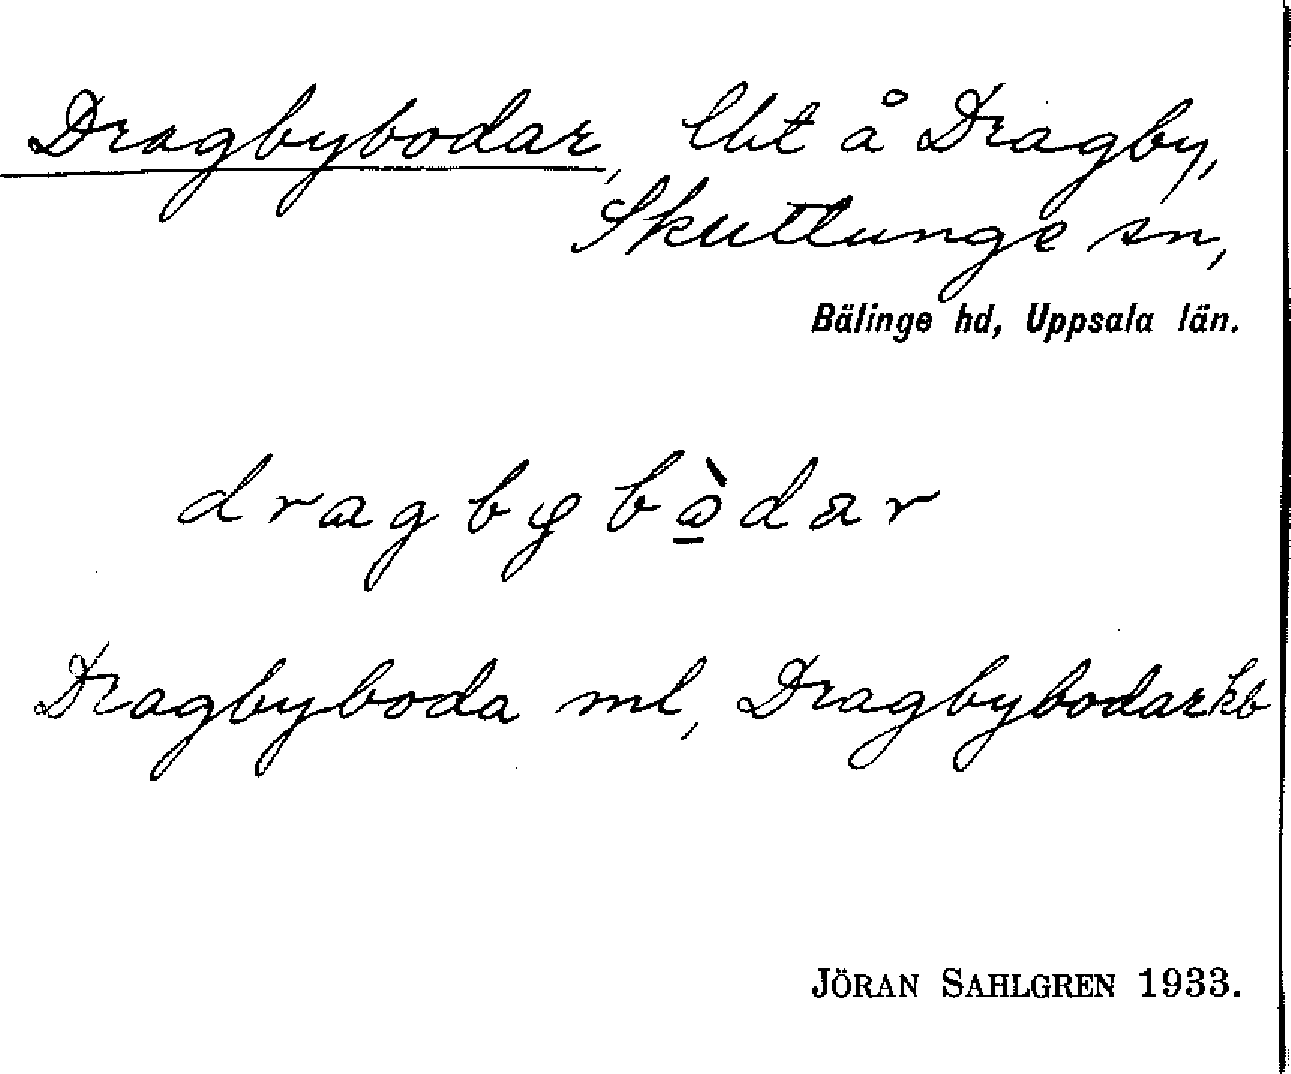 Dragbybodar, lht å Dragby,
Skuttunge sn,
Bälinge hd, Uppsala län.
dragbybò̱dar
Dragbyboda ml, Dragbybodar kb
JÖRAN SAHLGREN 1933.